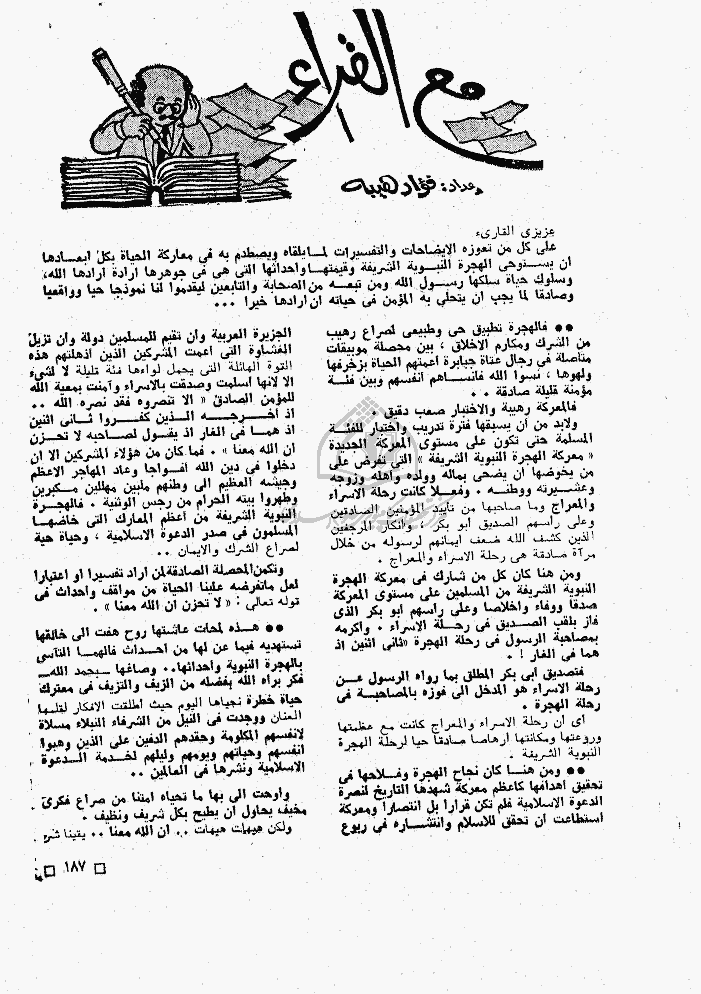 مع القراء
إعداد: فؤاد هيبه
عزيزى القارىء
على كل من تعوزه الايضاحات والتفسيرات لما يلقاه ويصطدم به فى معاركة الحياة بكل ابعادها
ان يستوحى الهجرة النبوية الشريفة وقيمتها واحداثها التى هى فى جوهرها ارادة ارادها الله،
وسلوك حياة سلكها رسول الله ومن تبعه من الصحابة والتابعين ليقدموا لنا نموذجا حيا وواقعيا
وصادقا لما يجب ان يتحلى به المؤمن فى حياته ان ارادها خيرا ...
●● فالهجرة تطبيق حى وطبيعى لصراع رهيب
من الشرك ومكارم الاخلاق ، بين محصلة موبيقات
متاصلة فى رجال عتاة جبابرة اعمتهم الحياة بزخرفها
ولهوها ، نسوا الله فانساهم انفسهم وبين فئة
مؤمنة قليلة صادقة . .
فالمعركة رهيبة والاختبار صعب دقيق .
ولابد من ان يسبقها فترة تدريب واختبار للفئة
المسلمة حتى تكون على مستوى المعركة الجديدة
« معركة الهجرة النبوية الشريفة » التى تفرض على
من يخوضها ان يضحى بماله وولده واهله وزوجه
وعشيرته ووطنه . وفعلا كانت رحلة الاسراء
والمعراج وما صاحبها من تأييد المؤمنين الصادقين
وعلى راسهم الصديق ابو بكر ، وانكار المرجفين
الذين كشف الله ضعف ايمانهم لرسوله من خلال
مرآة صادقة هى رحلة الاسراء والمعراج .
ومن هنا كان كل من شارك فى معركة الهجرة
النبوية الشريفة من المسلمين على مستوى المعركة
صدقا ووفاء واخلاصا وعلى راسهم ابو بكر الذى
فاز بلقب الصديق فى رحلة الاسراء . واكرمه
بمصاحبة الرسول فى رحلة الهجرة «ثانى اثنين اذ
هما فى الغار ! .
فتصديق ابى بكر المطلق بما رواه الرسول عن
رحلة الاسراء هو المدخل الى فوزه بالمصاحبة فى
رحلة الهجرة .
اى ان رحلة الاسراء والمعراج كانت مع عظمتها
وروعتها ومكانتها ارهاصا صادقا حيا لرحلة الهجرة
النبوية الشريفة .
●● ومن هنا كان نجاح الهجرة وفلاحها فى
تحقيق اهدافها كاعظم معركة شهدها التاريخ لنصرة
الدعوة الاسلامية فلم تكن فرارا بل انتصارا ومعركة
استطاعت ان تحقق للاسلام وانتشاره فى ربوع
الجزيرة العربية وان تقيم للمسلمين دولة وان تزيل
الغشاوة التى اعمت المشركين الذين اذهلتهم هذه
القوة الهائلة التى يحمل لواءها فئة قليلة لا لشىء
الا لانها اسلمت وصدقت بالاسراء وآمنت بمعية الله
للمؤمن الصادق « الا تنصروه فقد نصره الله ..
اذ اخرجه الذين كفروا ثانى اثنين
اذ هما فى الغار اذ يقول لصاحبه لا تحزن
ان الله معنا » . فما كان من هؤلاء المشركين الا ان
دخلوا فى دين الله افواجا وعاد المهاجر الاعظم
وجيشه العظيم الى وطنهم ملبين مهللين مكبرين
وطهروا بيته الحرام من رجس الوثنية . فالهجرة
النبوية الشريفة من اعظم المعارك التى خاضها
المسلمون فى صدر الدعوة الاسلامية ، وحياة حية
لصراع الشرك والايمان ..
وتكمن المحصلة الصادقة لمن اراد تفسيرا او اعتبارا
لعل ماتفرضه علينا الحياة من مواقف واحداث فى
قوله تعالى : « لا تحزن ان الله معنا » .
●● هذه لمحات عاشتها روح هفت الى خالقها
تستهديه فيما عن لها من احداث فالهمها التآسى
بالهجرة النبوية واحداثها.. وصاغها ـ بحمد الله ـ
فكر براه الله بفضله من الزيف والتزيف فى معترك
حياة خطرة نحياها اليوم حيث اطلقت الافكار لقلمها
العنان ووجدت فى النيل من الشرفاء النبلاء مسلاة
لانفسهم المكلومة وحقدهم الدفين على الذين وهبوا
انفسهم وحياتهم ويومهم وليلهم لخدمة الدعوة
الاسلامية ونشرها فى العالمين ..
وأوحت الى بها ما تحياه امتنا من صراع فكرى
مخيف يحاول ان يطيح بكل شريف ونظيف .
ولكن هيهات هيهات .. ان الله معنا .. يقينا
□ ١٨٧ □